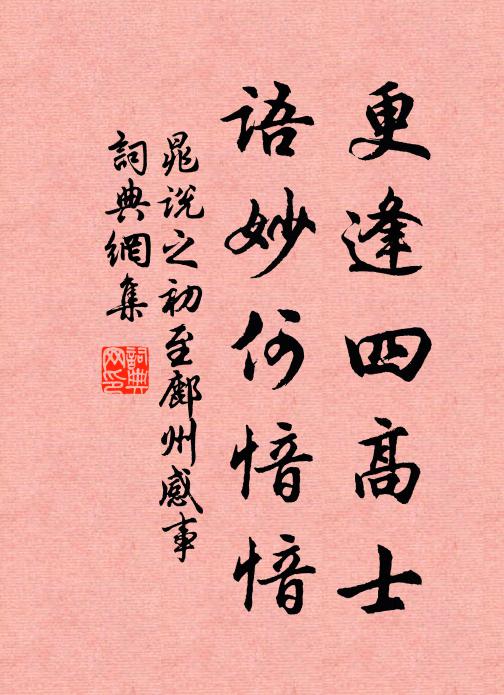 更逢四高士
語妙何愔愔
晁說之初至鄜州感事
詞典網集
詞典網印